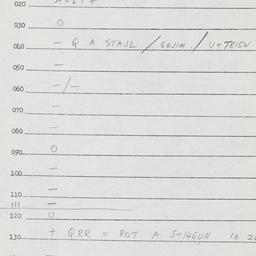 020
030 O
040 — Q A STAJL / GOJIM. / U+T8ISN
050 —
060 —/—
070 —
080 —
090 O
100 —
110 —
111 —
120 O
130 + QRR = ROT A S+14GUN IN